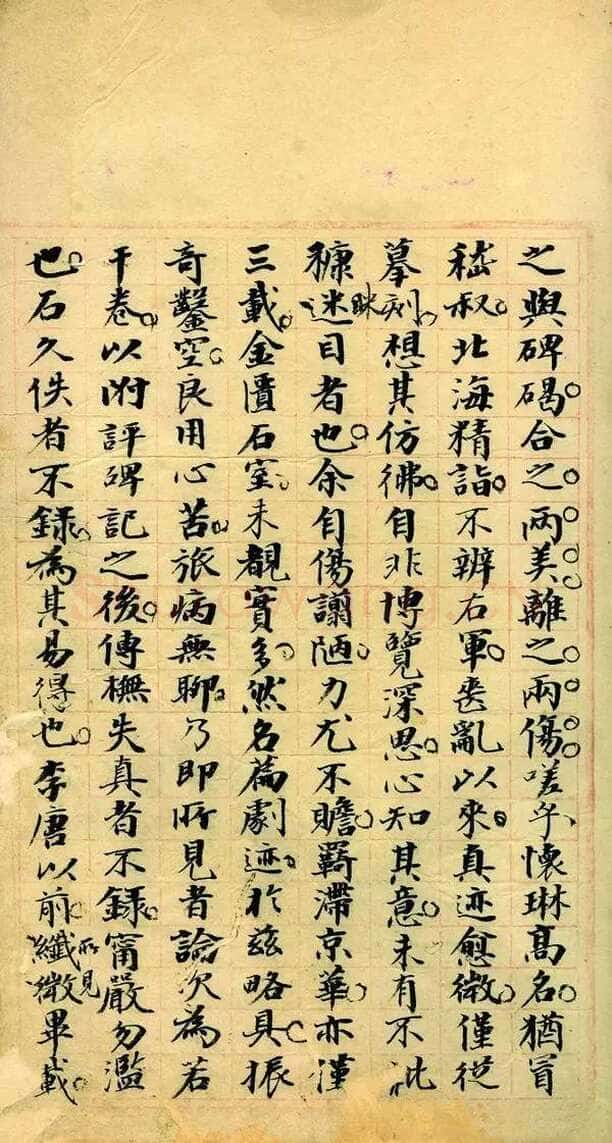 之與碑碣合之兩美離之兩傷嗟乎懷琳高名猶冒
嵇叔北海精詣不辨右軍喪亂以來真迹愈微僅從
摹刻想其仿彿自非博覽深思心知其意未有不
穅迷眯目者也余自傷謭陋力尤不贍羇滯京華亦僅
三載金匱石室未覩實多然名篇劇迹於茲略具振
奇鑿空良用心苦旅病無聊乃即所見者論次為若
干卷以附評碑記之後傳橅失真者不錄甯嚴勿濫
也石久佚者不錄為其易得也李唐以前纖微所見畢載